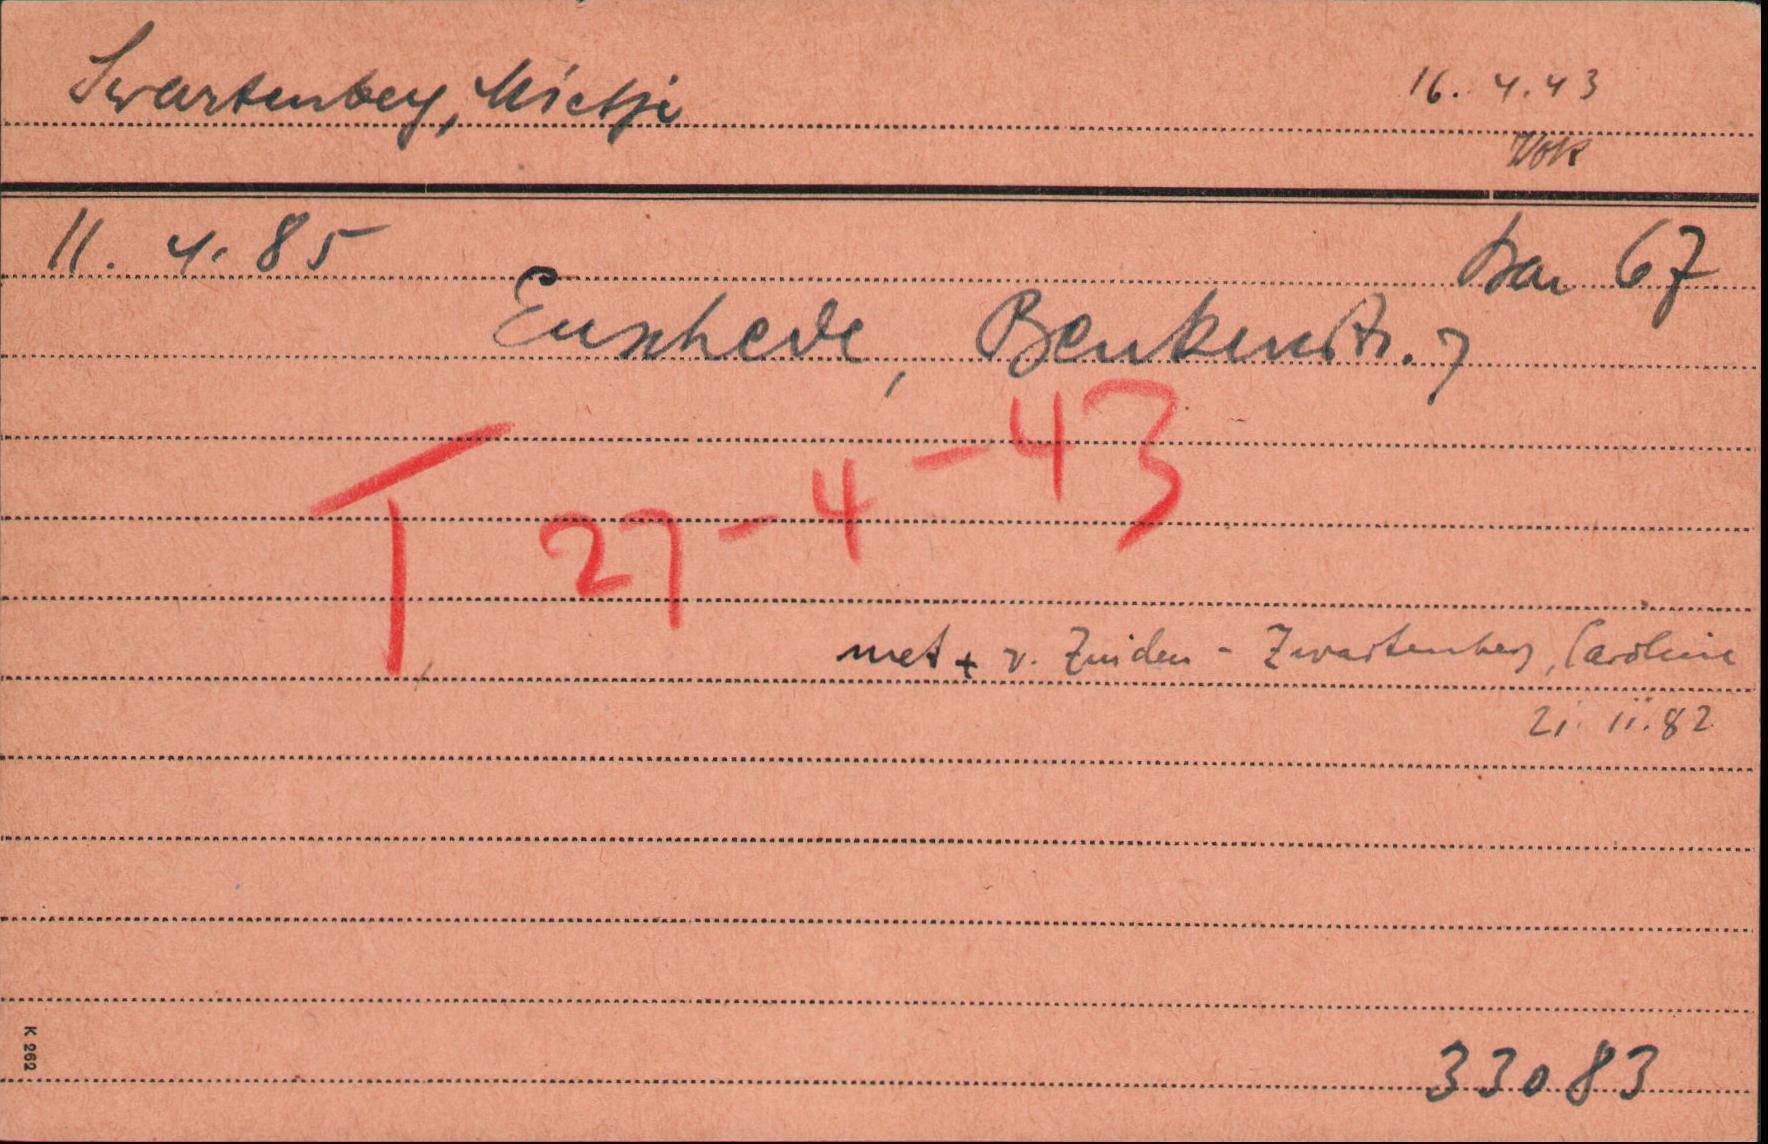 Swartenberg, Mietje 16. 4. 43
Vok
11. 4. 85 bar 67
Enschede, Beukerstr. 7
T 27-4-43
met + v. Zuiden - Zwartenberg, Caroline
21. 11. 82
K 262
33083